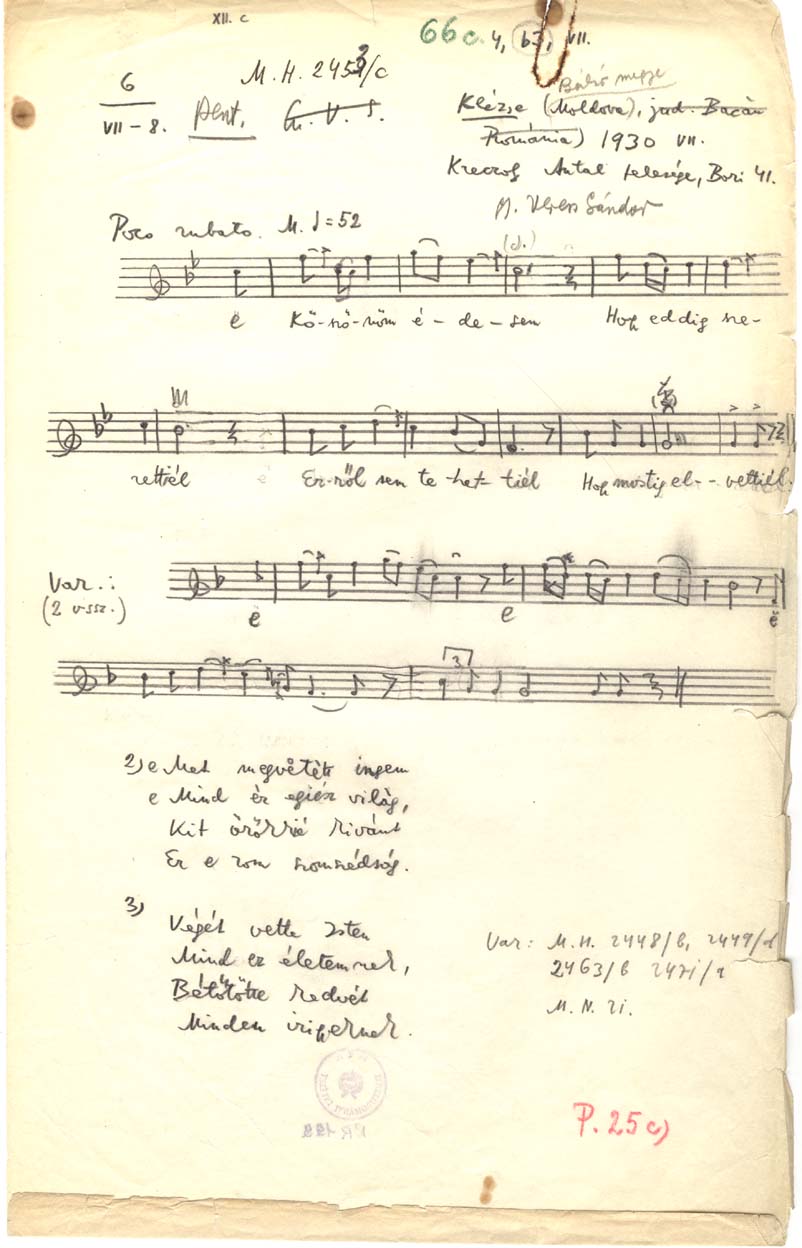 XII. c
66c. 4, b3, VII.
M. H. 2453/c
6
VII – 8.
Pent.
G. V. S.
Bákó megye
Klézse (Moldova), jud. Bacău
România) 1930 VII.
Antal felesége, Bori 41.
Veress Sándor
Poco rubato. M. ♩=52
(d.)
e Kö-szö-nöm é - de - sem Hogy eddig sze-
rettél e Ez-ről sem te-het-tiél Hogy mostig el - - vettiél.
Var.:
(2 v-ssz.)
e e e
3
2) e Met megvětěk ingem
e Mind ez egiész világ,
Kit örökké kivánt
Ez e rom szomszédság.
3)
Végét vette Isten
Mind ez életemnek,
Bétőtötte kedvét
Minden irigyeknek.
Var: M. H. 2448/b, 2449/d
2463/b 2471/a
M. N. 21.
P. 25 c)